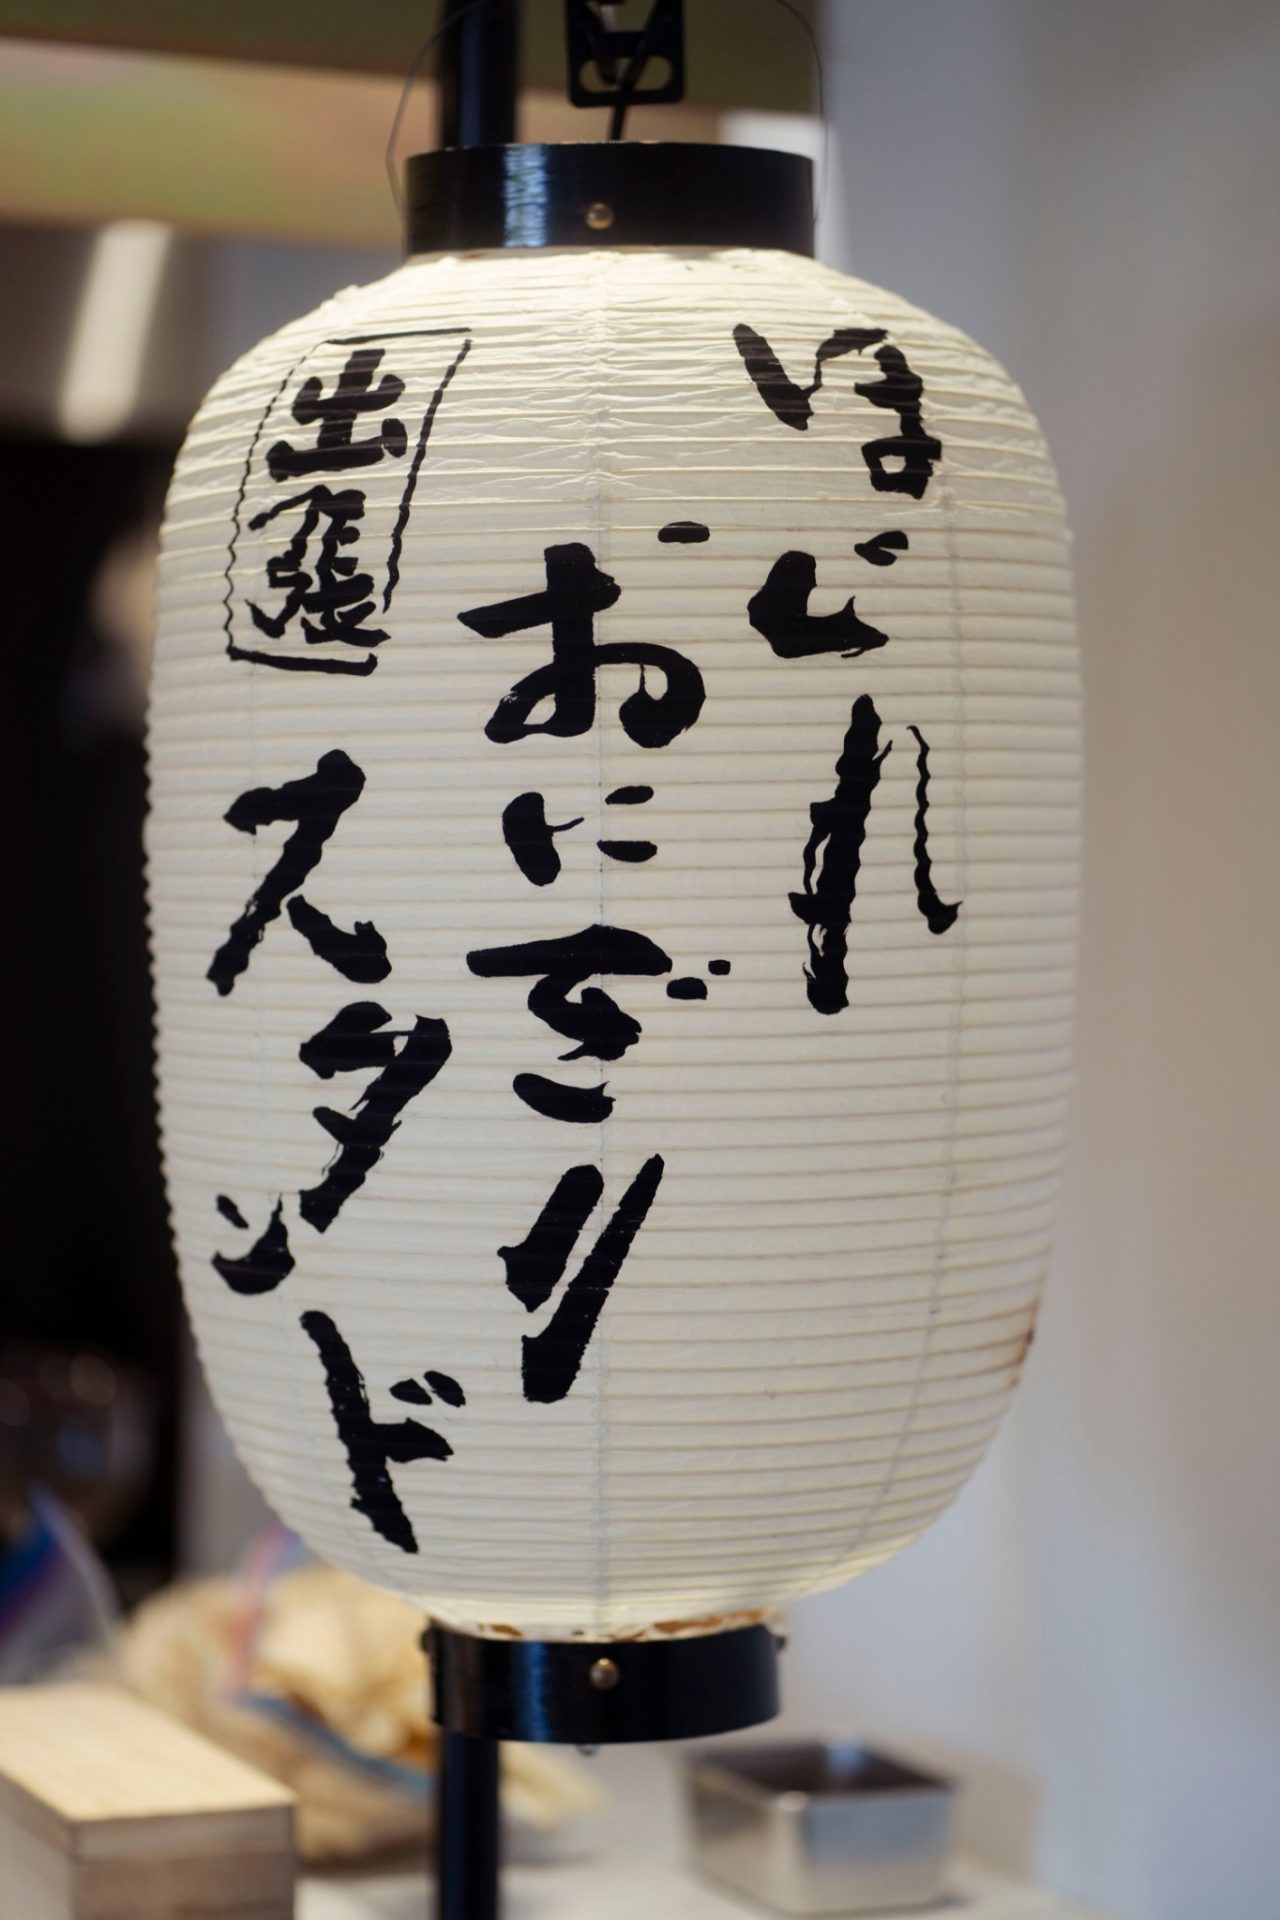 ほぐれ
おにぎり
出張
スタンド